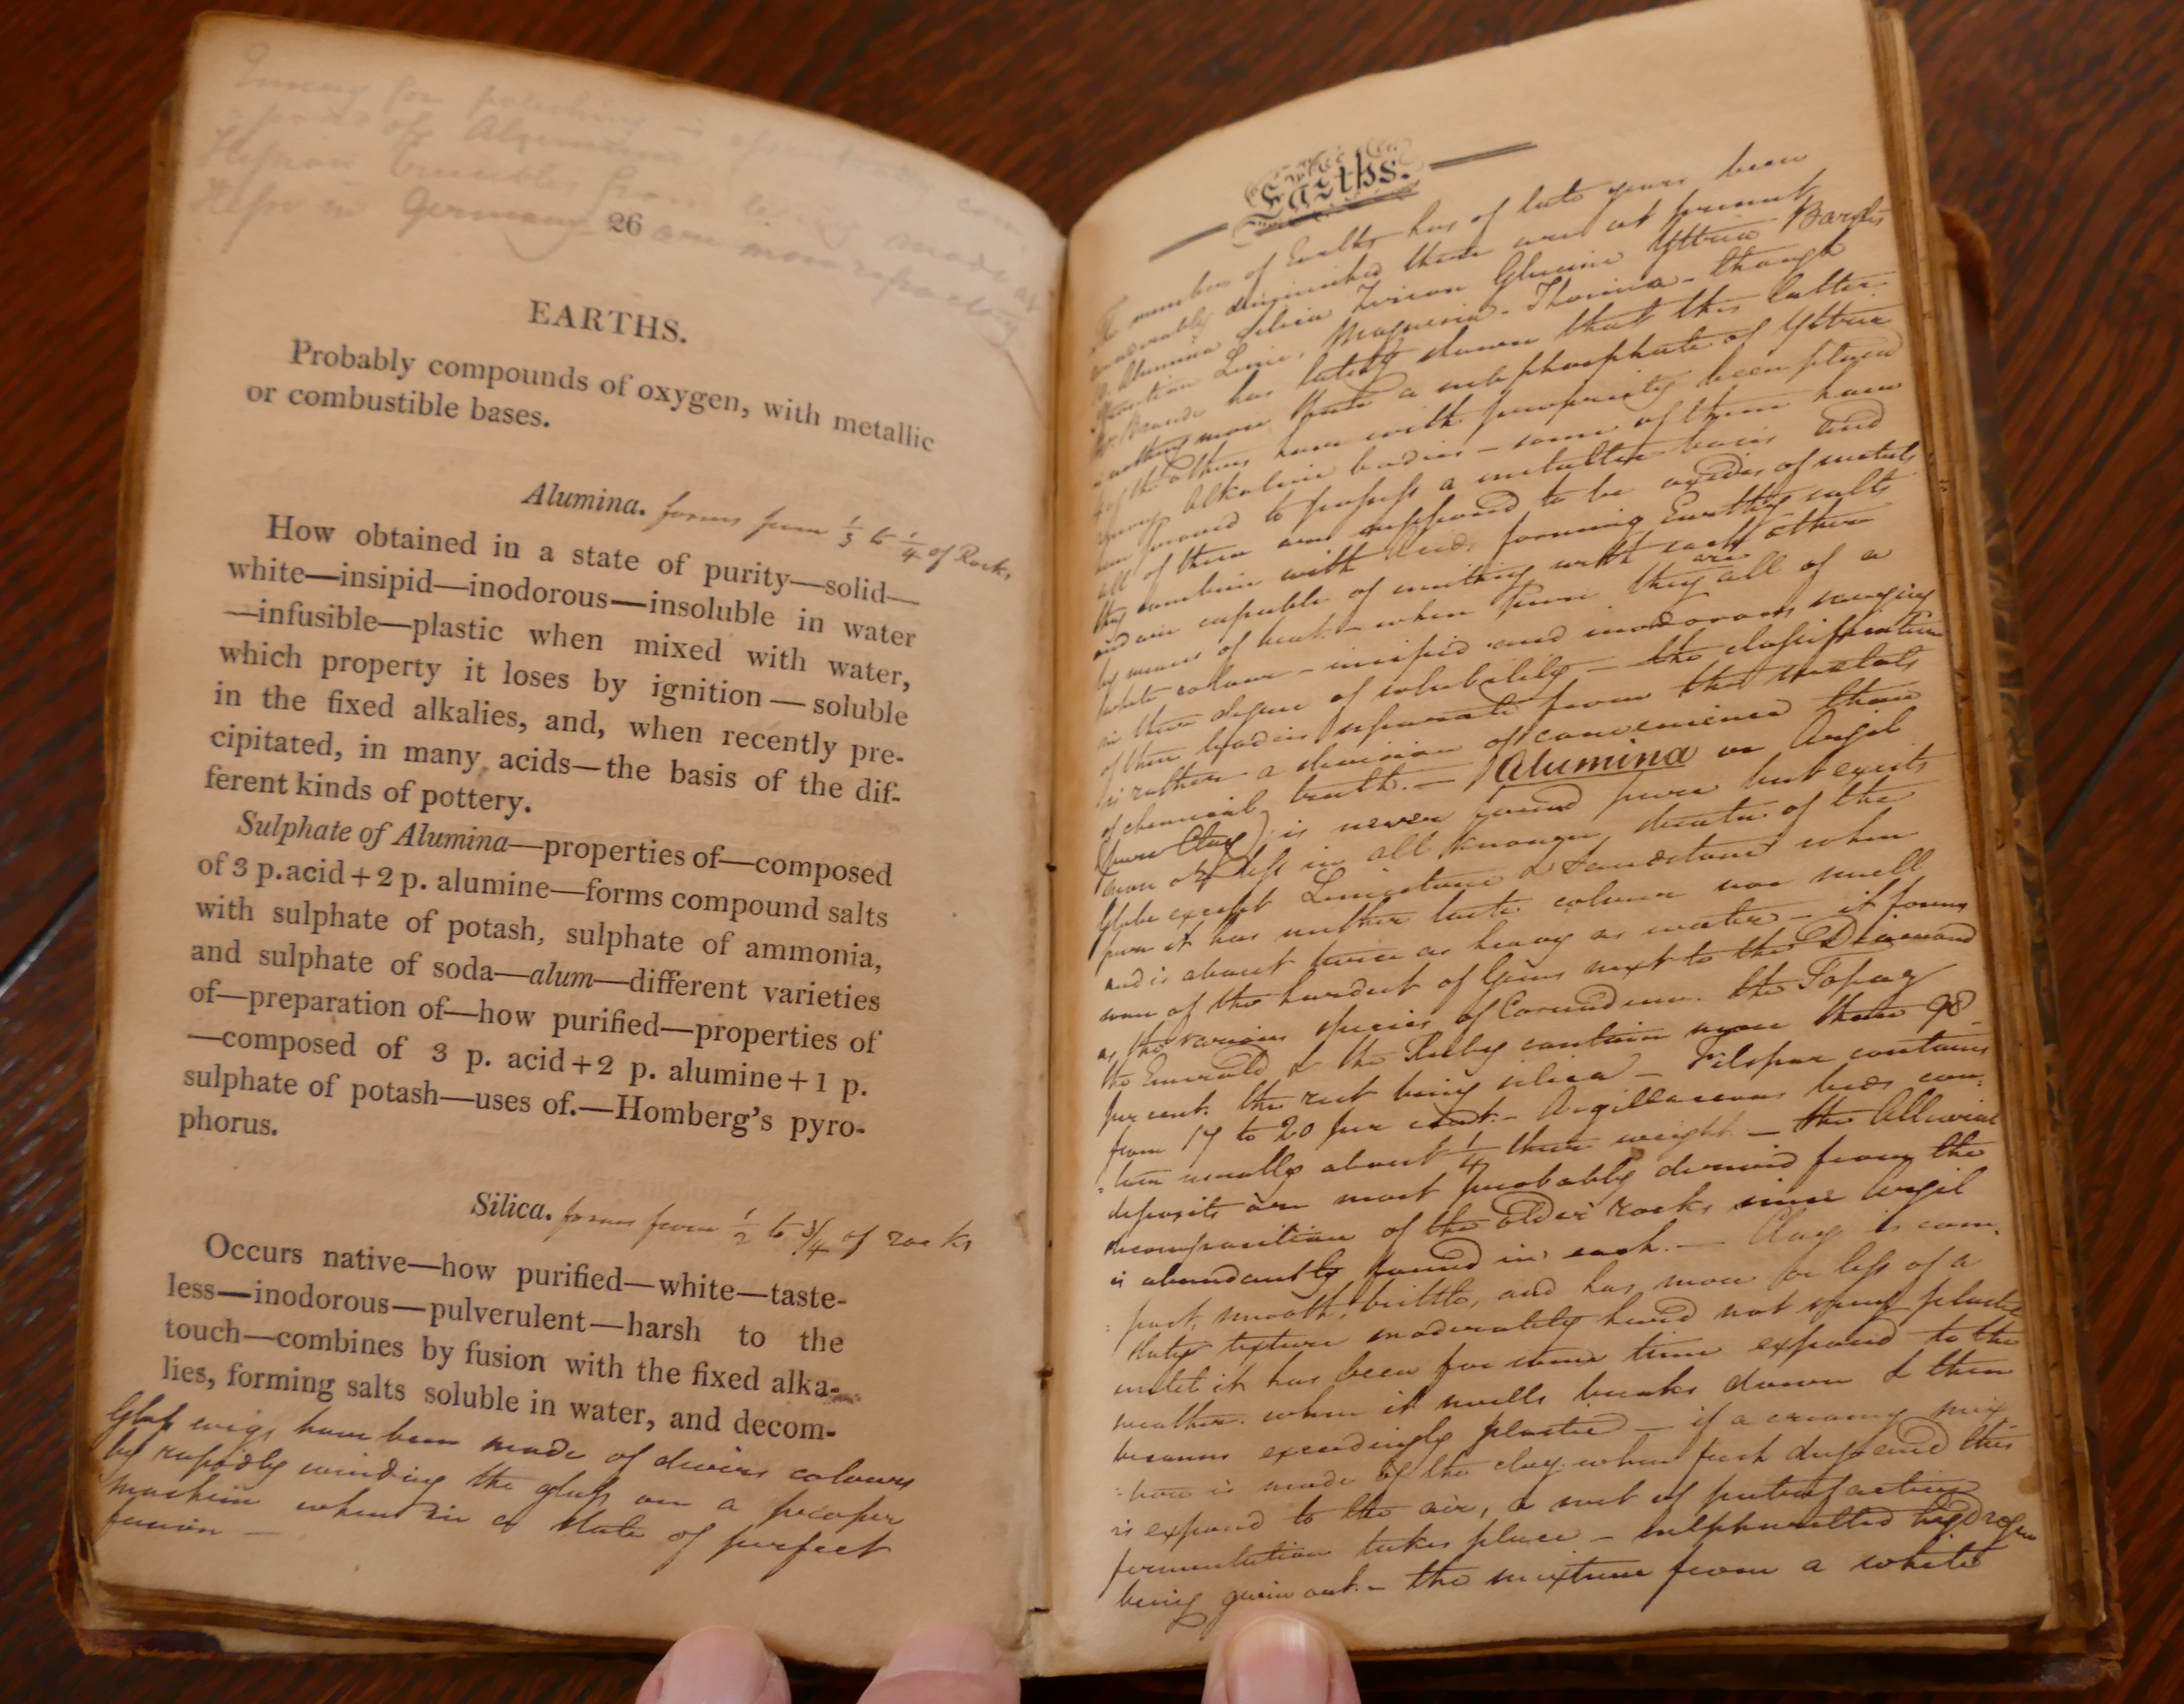 Emery for polishing is
parts of Alumina
Hessian Crucibles from being made at
Hesse in Germany are more refractory
26
EARTHS.
Probably compounds of oxygen, with metallic
or combustible bases.
Alumina. forms from 1/3 to 1/4 of Rocks
How obtained in a state of purity—solid—
white—insipid—inodorous—insoluble in water
—infusible—plastic when mixed with water,
which property it loses by ignition—soluble
in the fixed alkalies, and, when recently pre-
cipitated, in many acids—the basis of the dif-
ferent kinds of pottery.
Sulphate of Alumina—properties of—composed
of 3 p. acid + 2 p. alumine—forms compound salts
with sulphate of potash, sulphate of ammonia,
and sulphate of soda—alum—different varieties
of—preparation of—how purified—properties of
—composed of 3 p. acid + 2 p. alumine + 1 p.
sulphate of potash—uses of.—Homberg's pyro-
phorus.
Silica. forms from 1/2 to 3/4 of rocks
Occurs native—how purified—white—taste-
less—inodorous—pulverulent—harsh to the
touch—combines by fusion with the fixed alka-
lies, forming salts soluble in water, and decom-
Glass wigs have been made of divers colours
by rapidly winding the glass on a proper
machine when in a state of perfect
fusion —
Earths.
The number of Earths has of late years been
considerably diminished there are at present
Alumina Silica Zircon Glucine Yttria Barytes
Strontian Lime, Magnesia - Thorina - though
has lately shown that this latter
is nothing more than a subphosphate of Yttria
4 of the others have with propriety been placed
among Alkaline bodies - some of them have
been proved to possess a metallic basis and
all of them are supposed to be oxides of metals
they combine with Acids forming Earthy salts
and are capable of uniting with each other
by means of heat. - when pure they are all of a
white colour - insipid and inodorous varying
in their degree of solubility - the classification
of these bodies separate from the metals
is rather a division of convenience than
of chemical truth. - Alumina or Argil
(pure Clay) is never found pure but exists
more or less in all known strata of the
Globe except Limestone & Sandstone when
pure it has neither taste colour nor smell
and is about twice as heavy as water - it forms
some of the hardest of Gems next to the Diamond
as the various species of Corundum. the Topaz
the Emerald & the Ruby contain more than 90
per cent. the rest being silica - Felspar contains
from 17 to 20 per cent. - Argillaceous beds con-
-tain usually about 1/4 their weight - the Alluvial
deposits are most probably derived from the
decomposition of the older rocks since Argil
is abundantly found in each. - Clay is com-
-pact, smooth, brittle, and has more or less of a
slaty texture moderately hard not very plastic
until it has been for some time exposed to the
weather. when it swells breaks down & then
becomes exceedingly plastic - if a creamy mix-
-ture is made of the clay when first dug and this
is exposed to the air, a sort of putrefactive
fermentation takes place - sulphuretted hydrogen
being given out. - the mixture from a white